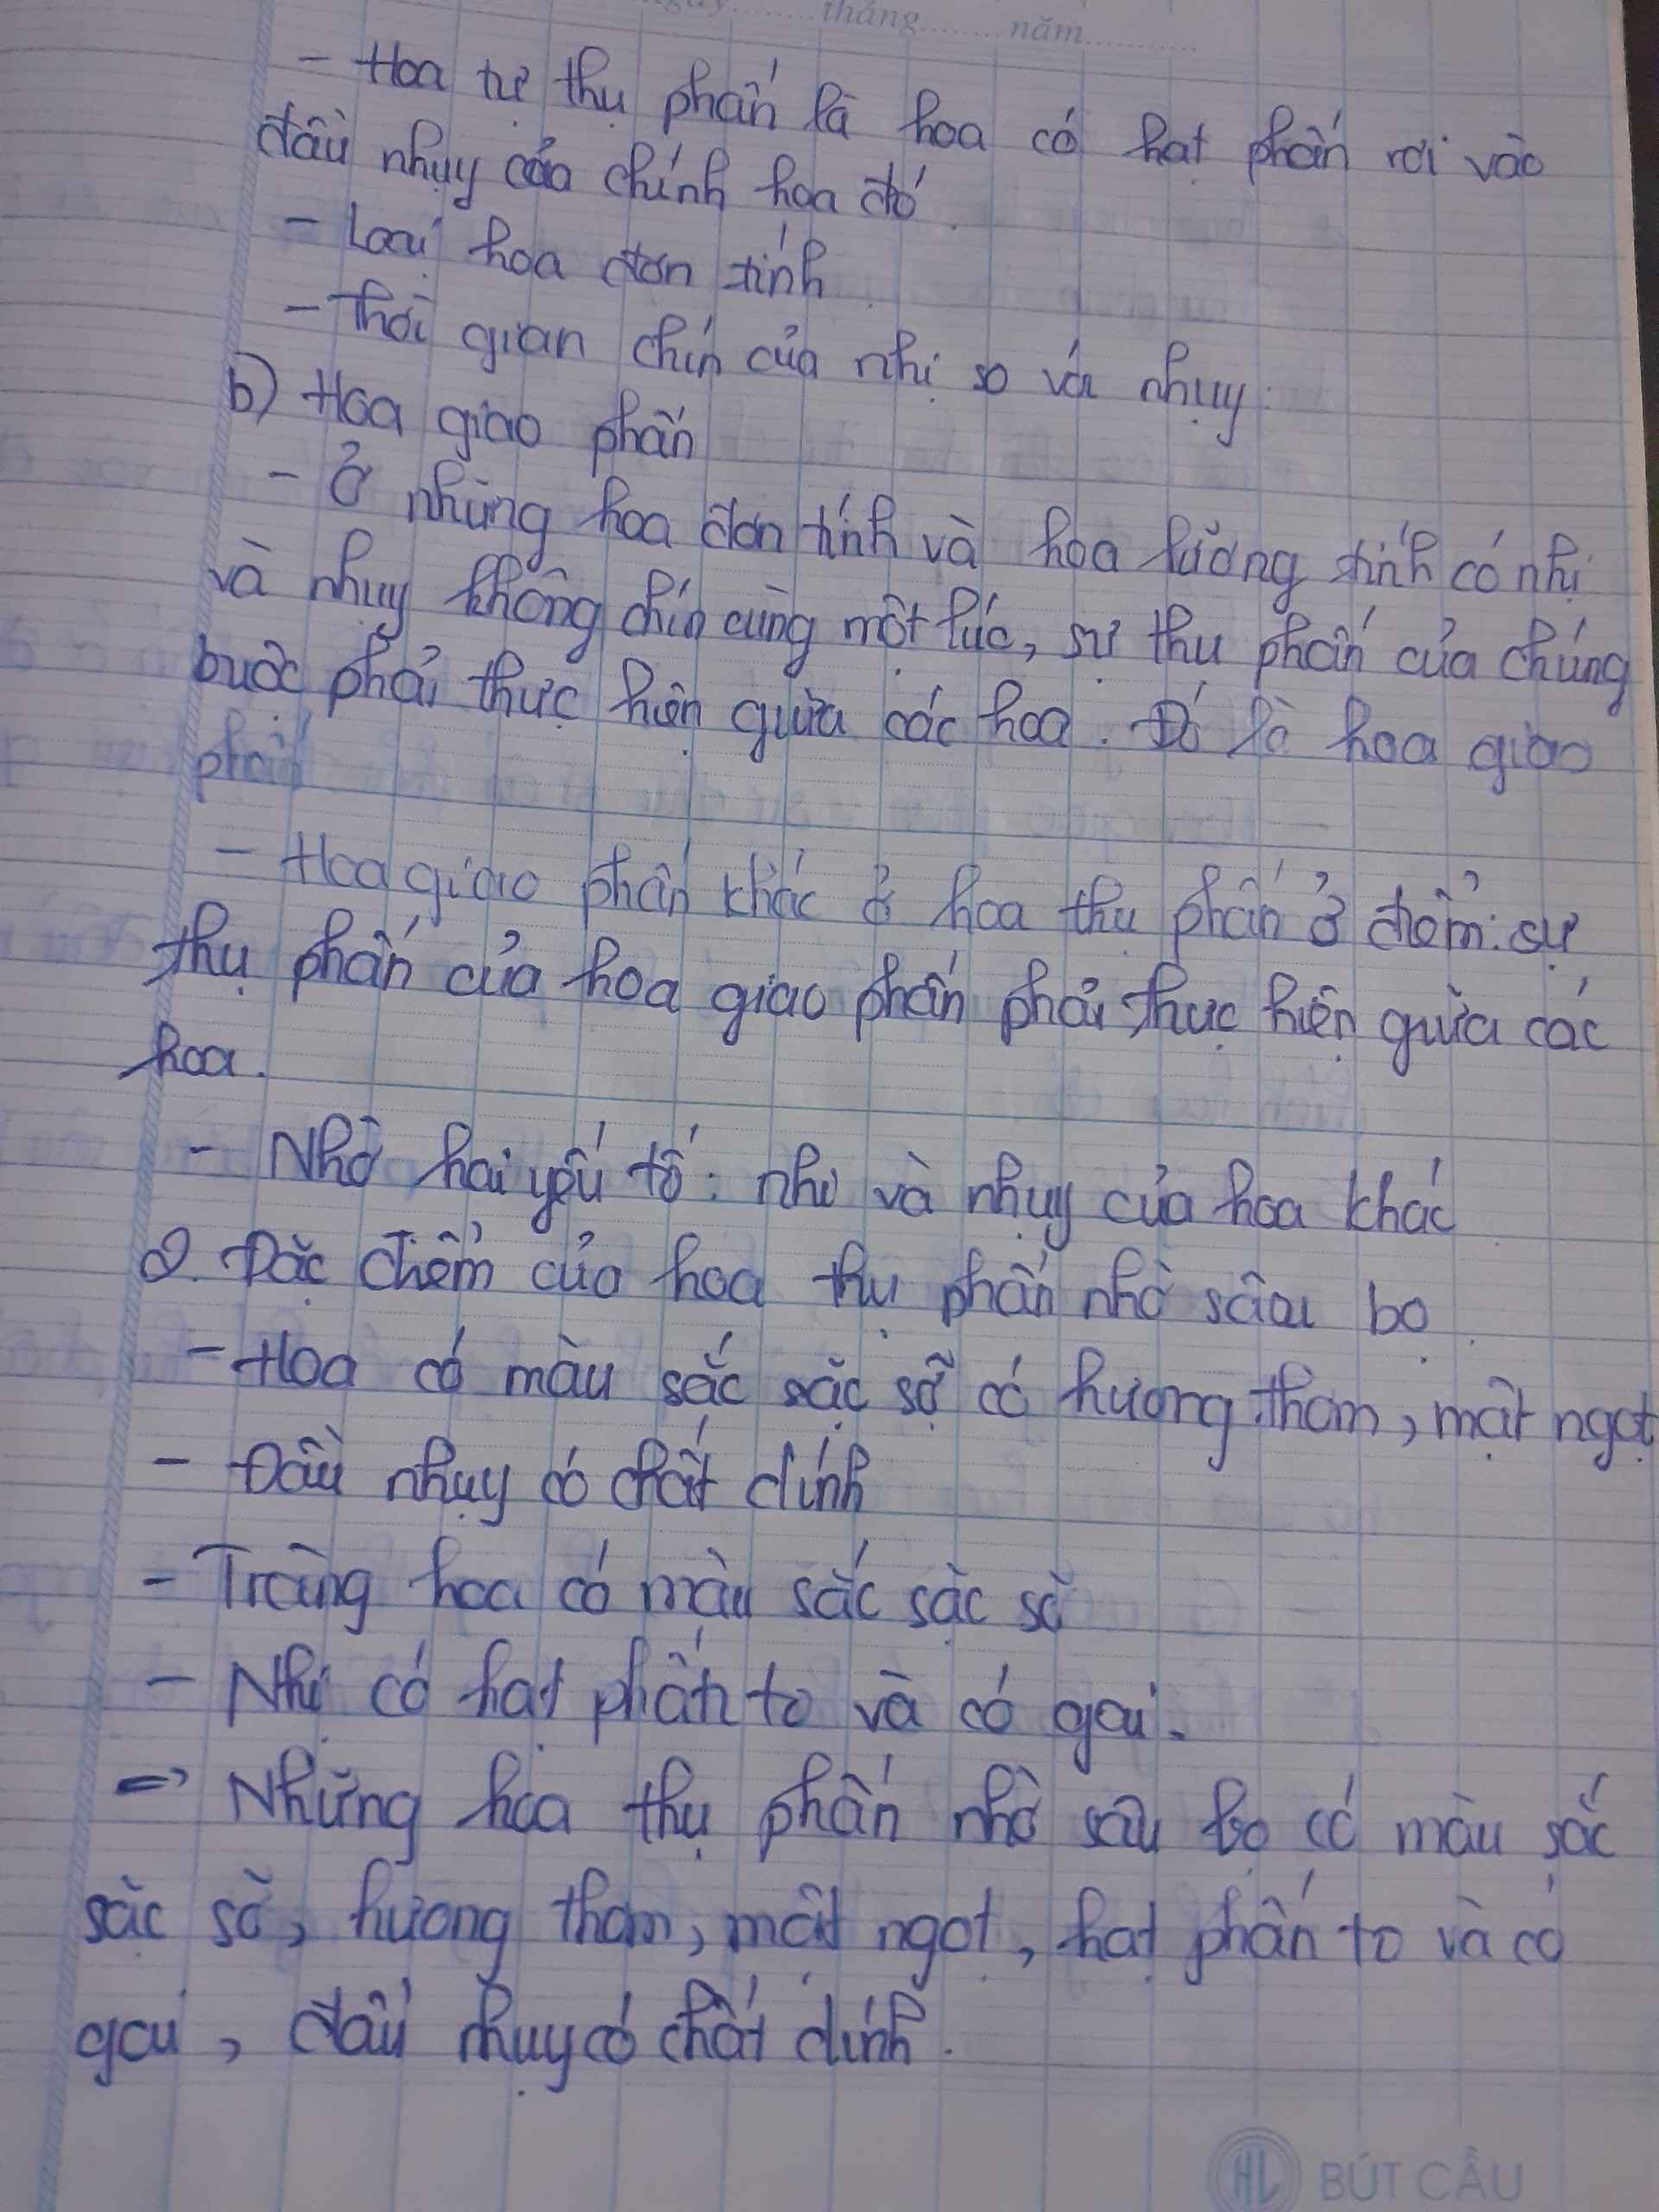 tháng........ năm............
- Hoa tự thụ phấn là hoa có hạt phấn rơi vào
đầu nhụy của chính hoa đó.
- Loại hoa đơn tính
- Thời gian chín của nhị so với nhụy.
b) Hoa giao phấn
- Ở những hoa đơn tính và hoa lưỡng tính có nhị
và nhụy không chín cùng một lúc, sự thụ phấn của chúng
buộc phải thực hiện giữa các hoa. Đó là hoa giao
phấn
- Hoa giao phấn khác ở hoa thụ phấn ở điểm: sự
thụ phấn của hoa giao phấn phải thực hiện giữa các
hoa.
- Nhờ hai yếu tố: nhị và nhụy của hoa khác
2. Đặc điểm của hoa thụ phấn nhờ sâu bọ
- Hoa có màu sắc sặc sỡ có hương thơm, mật ngọt
- Đầu nhụy có chất dính
- Tràng hoa có màu sắc sặc sỡ
- Nhị có hạt phấn to và có gai.
=> Những hoa thụ phấn nhờ sâu bọ có màu sắc
sặc sỡ, hương thơm, mật ngọt, hạt phấn to và có
gai, đầu nhụy có chất dính.
HL BÚT CẦU